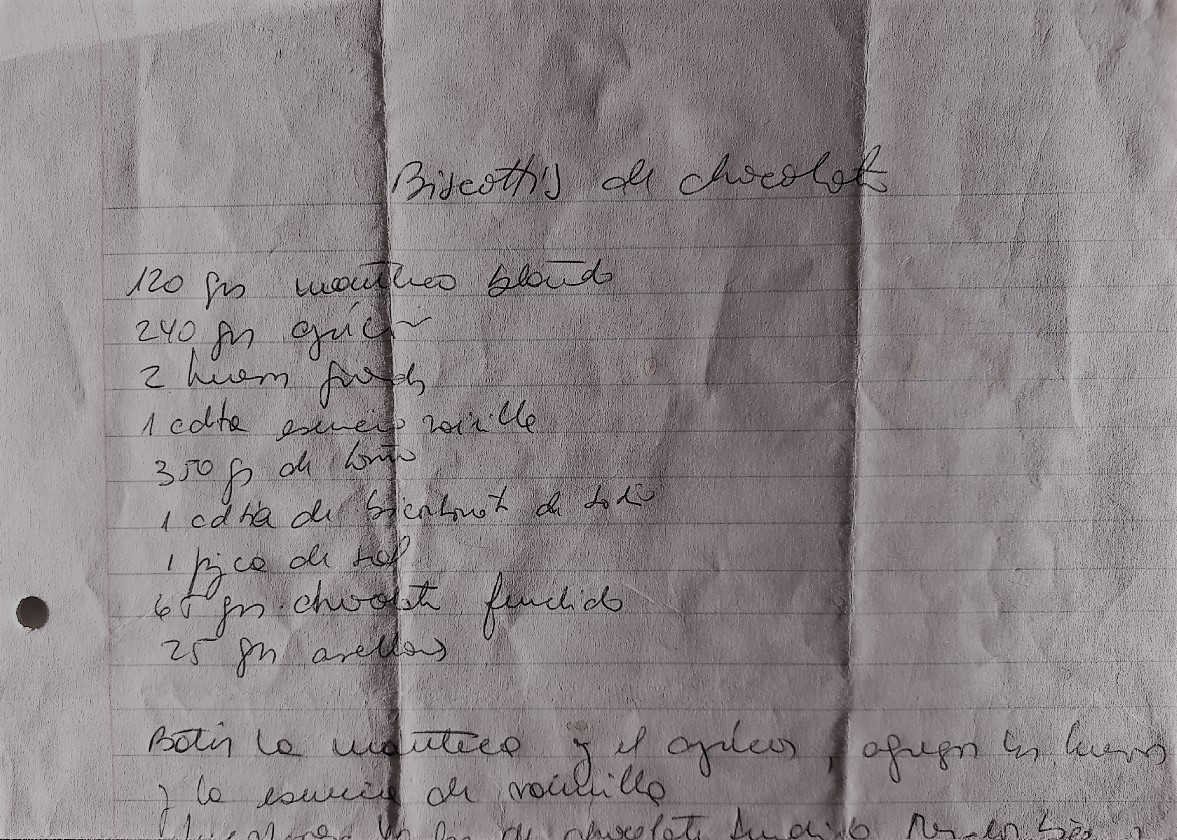 Biscottis de chocolate
120 grs manteca blanda
240 grs azúcar
2 huevos grandes
1 cdta esencia vainilla
350 gs de
1 cdta de bicarbonato de sodio
1 pizca de sal
65 grs chocolate fundido
25 grs avellanas
Batir la manteca y el azúcar, agregar los huevos
y la esencia de vainilla
de chocolate fundido